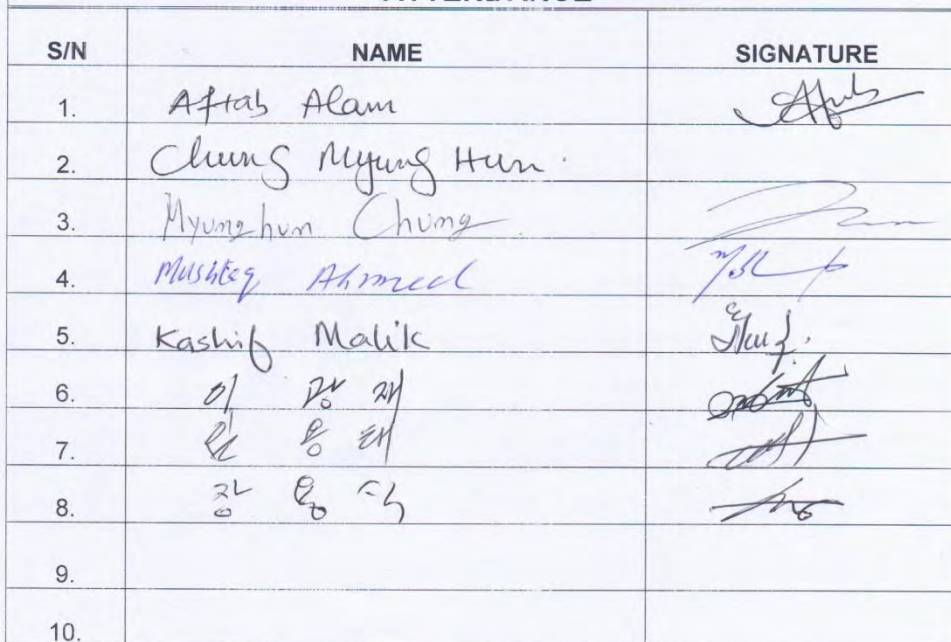 S/N NAME SIGNATURE
1. Aftab Alam
2. Chung Myung Hun.
3. Myunghun Chung
4. Mushtaq Ahmed
5. Kashif Malik
6. 이 광 재
7. 용 태
8. 장 용
9.
10.